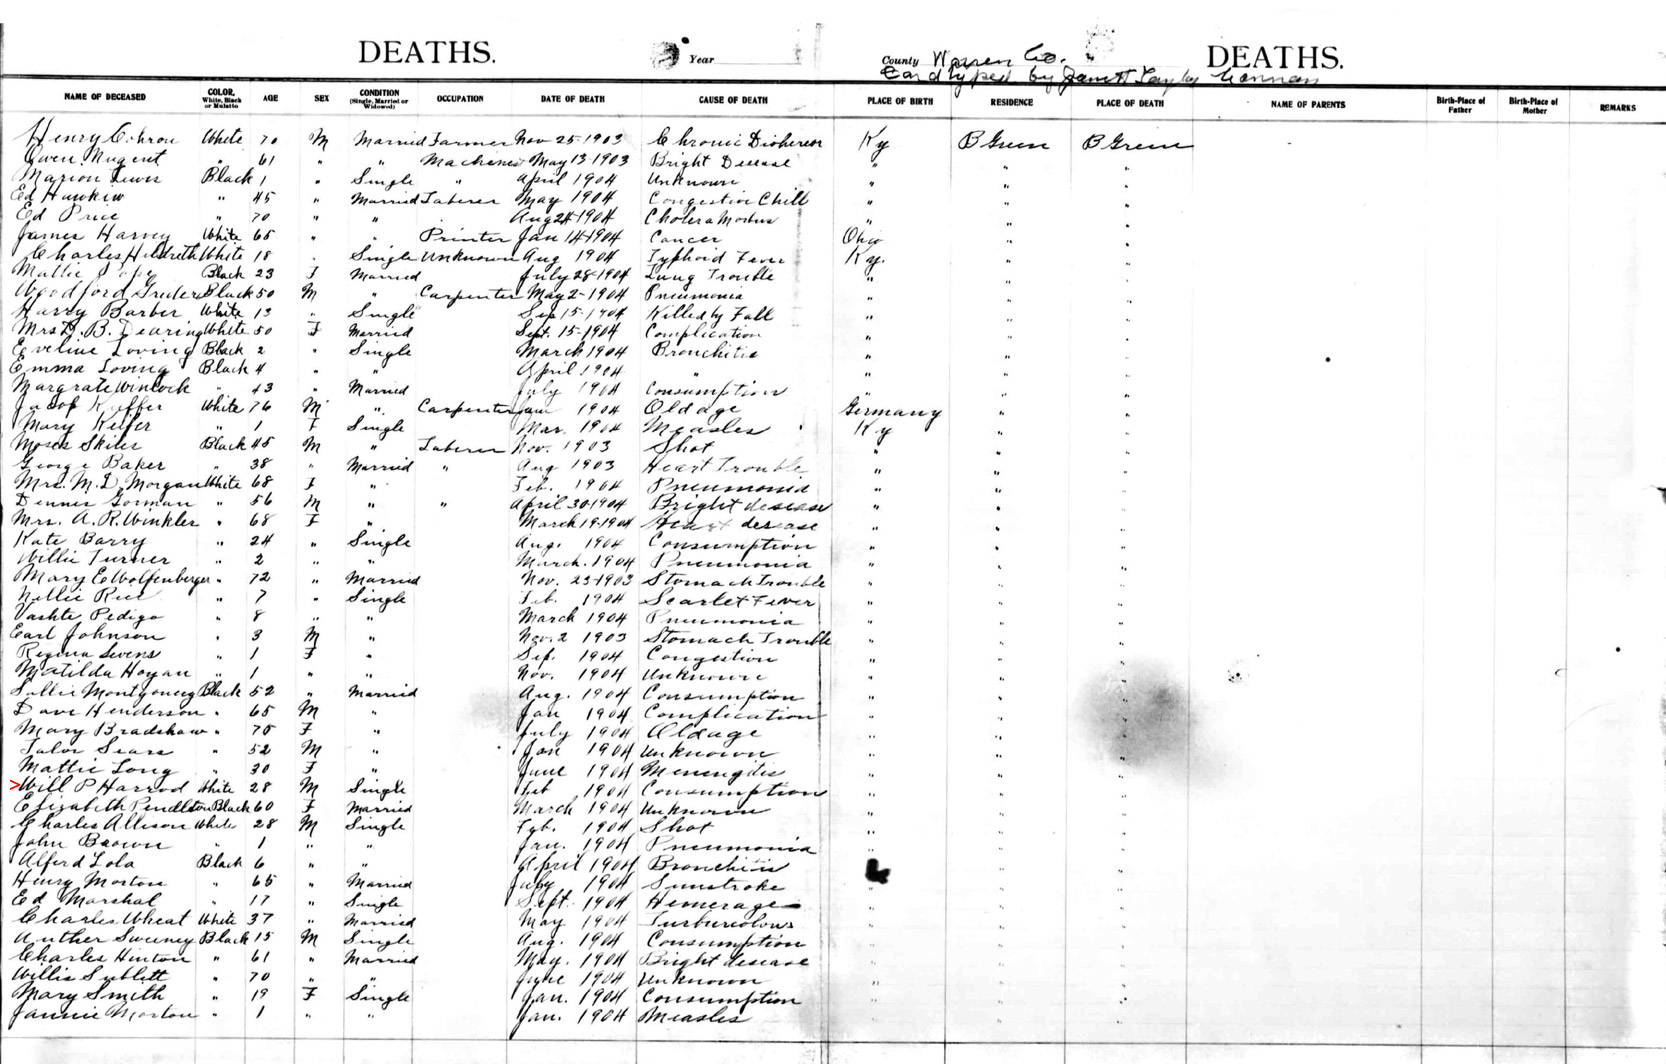 DEATHS. Year County Warren Co. DEATHS.
Card typed by Taylor
NAME OF DECEASED COLOR, White, Black or Mulatto AGE SEX CONDITION (Single, Married or Widowed) OCCUPATION DATE OF DEATH CAUSE OF DEATH PLACE OF BIRTH RESIDENCE PLACE OF DEATH NAME OF PARENTS Birth-Place of Father Birth-Place of Mother REMARKS
Henry Cohron White 70 M Married Farmer Nov 25-1903 Chronic Ky B Green B Green
Owen Nugent " 61 " " May 13-1903 Bright Disease " " "
Marion Lewis Black 1 " Single " April 1904 Unknown " " "
Ed " 45 " Married Laberer May 1904 Congestive Chill " " "
Ed Price " 70 " " Aug 24-1904 Cholera Morbus " " "
James Harvey White 65 " " Printer Jan 14-1904 Cancer Ohio " "
Charles Hildreth White 18 " Single Unknown Aug 1904 Typhoid Fever Ky. " "
Mattie Black 23 F Married July 28-1904 Lung Trouble " " "
Woodford Black 50 M " Carpenter May 2-1904 Pneumonia " " "
Harry Barber White 13 " Single Sep 15-1904 Killed by Fall " " "
Mrs D. B. Dearing White 50 F Married Sept. 15-1904 Complication " " "
Eveline Loving Black 2 " Single March 1904 Bronchitis " " "
Emma Loving Black 4 " " April 1904 " " " "
Margrate Winlock " 43 " Married July 1904 Consumption " " "
Jacob White 76 M " Carpenter Jan 1904 Old age Germany " "
Mary Keifer " 1 F Single Mar. 1904 Measles Ky " "
Moses Skiles Black 45 M " Laberer Nov. 1903 Shot " " "
George Baker " 38 " Married " Aug 1903 Heart Trouble " " "
Mrs. M. D. Morgan White 68 F " Feb. 1904 Pneumonia " " "
Dennis Gorman " 56 M " " April 30-1904 Bright desease " " "
Mrs. A. R. Winkler " 68 F " March 19-1904 Heart desease " " "
Kate Barry " 24 " Single Aug. 1904 Consumption " " "
Willie Turner " 2 " " March. 1904 Pneumonia " " "
Mary E Wolfenberger " 72 " Married Nov. 23-1903 Stomach Trouble " " "
Nellie Rice " 7 " Single Feb. 1904 Scarlet Fever " " "
Vashte Pedigo " 8 " " March 1904 Pneumonia " " "
Earl Johnson " 3 M " Nov. 2 1903 Stomach Trouble " " "
Regina " 1 F " Sep. 1904 Congestion " " "
Matilda Hogan " 1 " " Nov. 1904 Unknown " " "
Sallie Montgomery Black 52 " Married Aug. 1904 Consumption " " "
Dave Henderson " 65 M " Jan 1904 Complication " " "
Mary Bradshaw " 75 F " July 1904 Oldage " " "
Talor Sears " 52 M " Jan 1904 Unknown " " "
Mattie Long " 30 F " June 1904 Menengitis " " "
>Will P Harrod White 28 M Single Feb 1904 Consumption " " "
Elizabeth Pendleton Black 60 F Married March 1904 Unknown " " "
Charles Allison White 28 M Single Feb. 1904 Shot " " "
John Brown " 1 " " Jan. 1904 Pneumonia " " "
Alferd Lola Black 6 " " April 1904 Bronchitis " "
Henry Morton " 65 " Married July 1904 Sunstroke " " "
Ed Marshal " 17 " Single Sept. 1904 Hemerage " " "
Charles Wheat White 37 " Married May 1904 " " "
Auther Sweeney Black 15 M Single Aug. 1904 Consumption " " "
Charles Hinton " 61 " Married May. 1904 Bright desease " " "
Willis Sublitt " 70 " " June 1904 Unknown " " "
Mary Smith " 19 F Single Jan. 1904 Consumption " " "
Fannie Morton " 1 " " Jan. 1904 Measles " " "